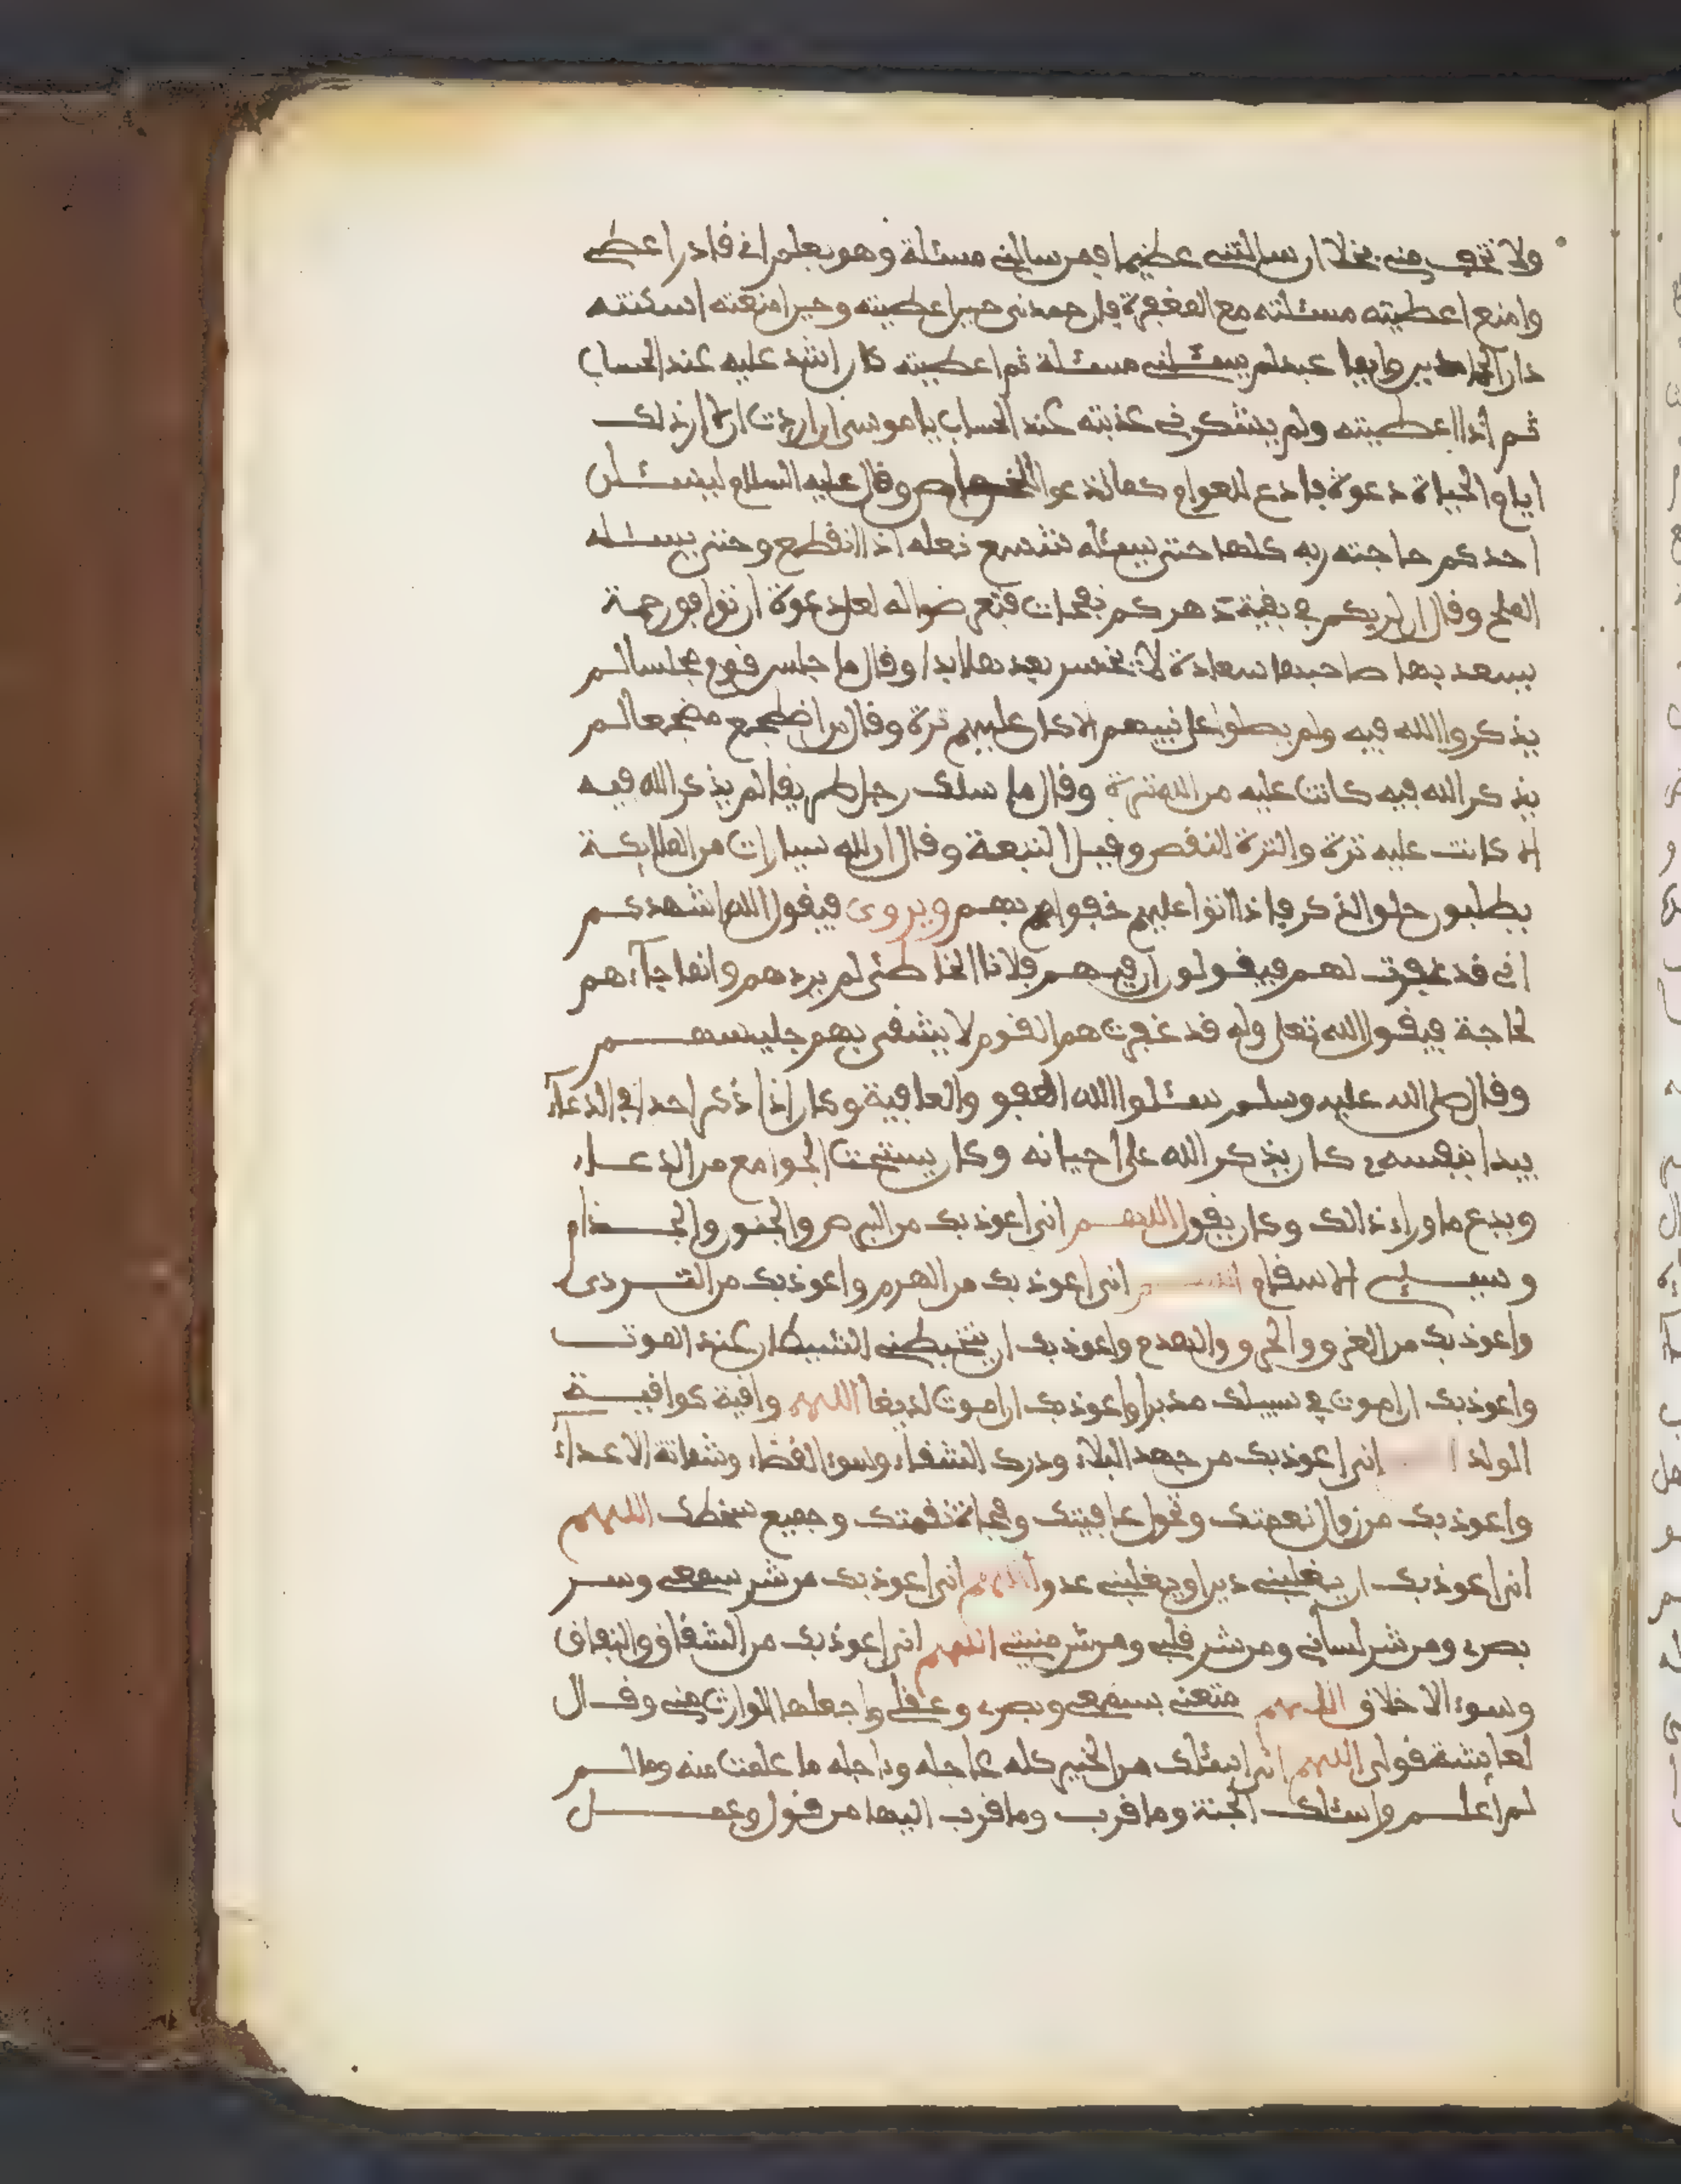 ولا تخف مني بخلا ان سالتني عظيما فمن سالني مسئلة وهو يعلم اني قادر اعطي
وامنع اعطيته مسئلته مع المغفرة فان حمدني حين اعطيته وحين امنعته اسكنته
دار الحامدين وايما عبد لم يسئلني مسئلة ثم اعطيته كان اشد عليه عند الحساب
ثم اذا اعطيته ولم يشكرني عذبته عند الحساب يا موسى ان اردت ان
ايام الحياة دعوة فادع للعوام كما تدعوا للخواص وقال عليه السلام ليسئلن
احدكم حاجته ربه كلها حتى يسئله شسع نعله اذا انقطع وحتى يسئله
الملح وقال ان لربكم في بقية دهركم نفحات لعل دعوة ان توافق رحمة
يسعد بها صاحبها سعادة لا يخسر بعدها ابدا وقال ما جلس قوم مجلسا لم
يذكروا الله فيه ولم يصلوا على نبيهم الا كان عليهم ترة وقال من اضطجع مضجعا لم
يذكر الله فيه كانت عليه من الله ترة وقال ما سلك رجل طريقا لم يذكر الله فيه
الا كانت عليه ترة والترة النقص وقيل التبعة وقال ان لله سيارات من الملائكة
يطلبون حلق الذكر فاذا اتوا عليهم حفوا بهم ويروى فيقول الله اشهدكم
اني قد غفرت لهم فيقولون ان فيهم فلانا الخاطئ لم يردهم وانما جاءهم
لحاجة فيقول الله تعلى وله قد غفرت هم القوم لا يشقى بهم جليسهم
وقال صلى الله عليه وسلم سئلوا الله العفو والعافية وكان اذا ذكر احدا في الدعاء
يبدا بنفسه وكان يذكر الله على احيانه وكان يستحب الجوامع من الدعاء
ويدع ما وراء ذالك وكان يقول اللهم اني اعوذ بك من البرص والجنون والجذام
وسيئ الاسقام اللهم اني اعوذ بك من الهرم واعوذ بك من التردى
واعوذ بك من الغرق والحرق والهدم واعوذ بك ان يتخبطني الشيطان عند الموت
واعوذ بك ان اموت في سبيلك مدبرا واعوذ بك ان اموت لديغا اللهم واقية كواقية
الولد اني اعوذ بك من جهد البلاء ودرك الشقاء وسوء القضاء وشماتة الاعداء
واعوذ بك من زوال نعمتك وتحول عافيتك وفجاة نقمتك وجميع سخطك اللهم
اني اعوذ بك ان يغلبني دين او يغلبني عدو اللهم اني اعوذ بك من شر سمعي وشر
بصري ومن شر لساني ومن شر قلبي ومن شر منيتي اللهم اني اعوذ بك من الشقاق والنفاق
وسوء الاخلاق اللهم متعني بسمعي وبصري وعقلي واجعلها الوارث مني وقال
لعائشة قولي اللهم اني اسئلك من الخير كله عاجله وءاجله ما علمت منه وما لم
لم اعلم واسئلك الجنة وما قرب وما قرب اليها من قول وعمل